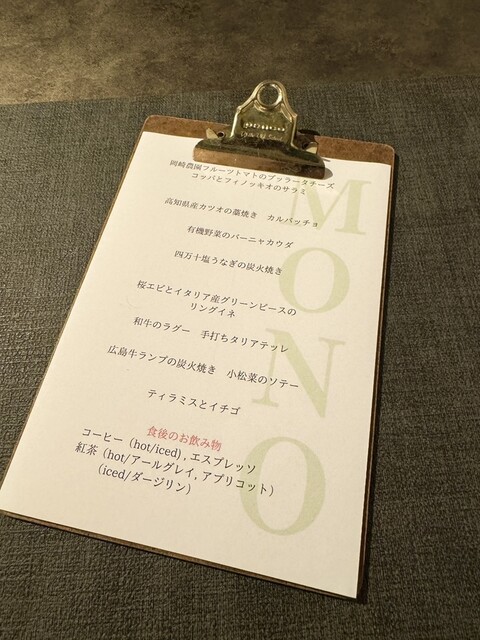 岡崎農園フルーツトマトのブッラータチーズ
コッパとフィノッキオのサラミ
高知県産カツオの藁焼き　カルパッチョ
有機野菜のバーニャカウダ
四万十塩うなぎの炭火焼き
桜エビとイタリア産グリーンピースの
リングイネ
和牛のラグー　手打ちタリアテッレ
広島牛ランプの炭火焼き　小松菜のソテー
ティラミスとイチゴ
食後のお飲み物
コーヒー（hot/iced）, エスプレッソ
紅茶（hot/アールグレイ, アプリコット）
（iced/ダージリン）
MONO